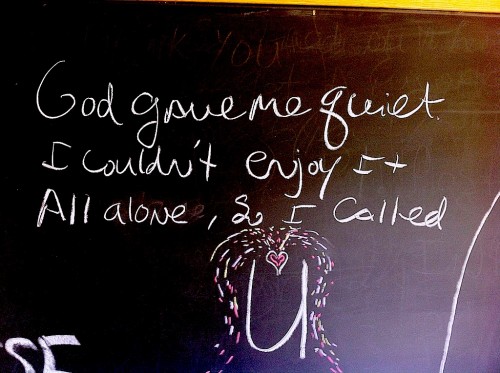 God gave me quiet.
I couldn't enjoy It
All alone, So I Called
U
SE